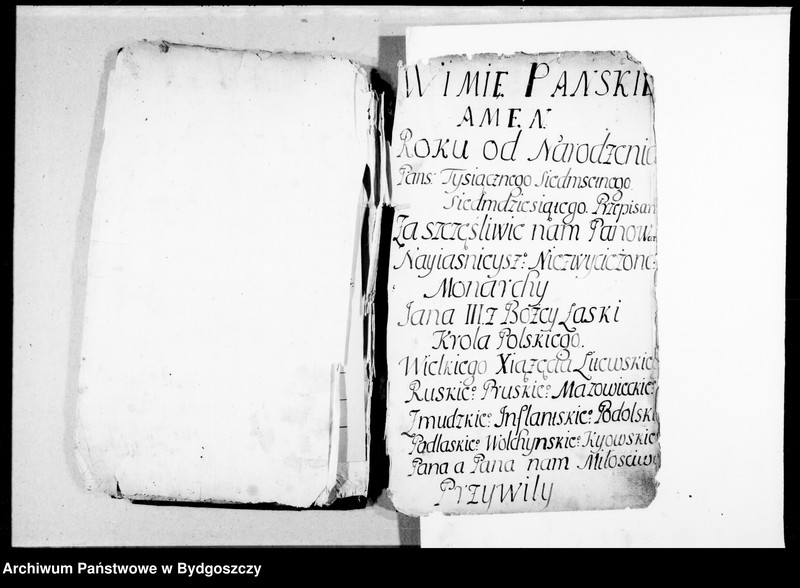 W IMIĘ PANSKIE
AMEN
Roku od Narodzenia
Pans: Tysiącznego Siedmsetnego
Siedmdziesiątego. Przepisan
Za szczęśliwie nam Panow
Nayiaśnieysz: Niezwyciężone
Monarchy
Jana III. z Bożey Łaski
Krola Polskiego.
Wielkiego Xiążęcia Litewskieg
Ruskieg: Pruskieg: Mazowieckieg:
Żmudzkieg: Inflantskieg: Podolski
Padlaskieg: Wołchynskieg: Kyowskieg
Pana a Pana nam Miłosciwe
Przywiły
Archiwum Państwowe w Bydgoszczy